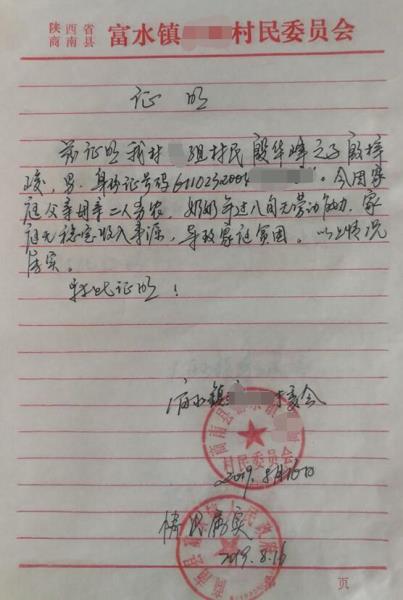 陕西省
商南县
富水镇 村民委员会
证明
兹证明我村 组村民殷华峰之子殷梓
峻,男,身份证号码611023200 。今因家
庭父亲母亲二人务农,奶奶年过八旬无劳动能力,家
庭无稳定收入来源,导致家庭贫困。以上情况
属实。
特此证明!
富水镇 村委会
商南县富水镇
村民委员会
2019.8月16日
情况属实
2019.8.16
页